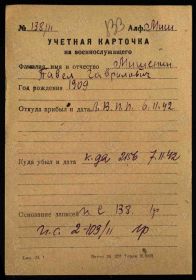 № 138/11 Алф. Миш
УЧЕТНАЯ КАРТОЧКА
на военнослужащего
Фамилия, имя и отчество Мишенин
Павел Гаврилович
Год рождения 1909
Откуда прибыл и дата Л.В.П.П. 6.11.42
Куда убыл и дата к-да 215Б 7.11.42
Основание записей п/с 138. гр
п.с. 2-109/11 гр